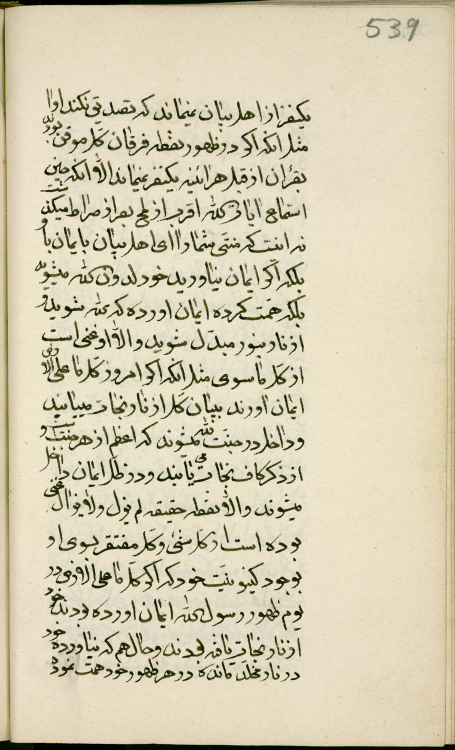 539
یکنفر از اهل بیان نمیماند که تصدیق نکند او را
مثل انکه اگر در ظهور نقطه فرقان کل موقن بودند
بقران از قبل هر اینه یکنفر نمیماند الا انکه حین
استماع ایات الله اقرب از لمح بصر از صراط میگذشت
نه اینست که منتی شما را ای اهل بیان بایمان باو
بلکه اگر ایمان نیاورید خود لدون الله میشوید
بلکه همت کرده ایمان اورده که لله شوید و
از نار بنور مبدل شوید والا او غنی است
از کل ما سوی مثل انکه اگر امروز کل ما علی الارض
ایمان اورند ببیان کل از نار نجات مییابند
و داخل در جنت الله میشوند که اعظم از هر جنت است و
از ذکر کاف نجات می یابند و در ظل ایمان داخل
میشوند والا نقطه حقیقه لم یزل ولا یزال غنی
بوده است از کل شئی و کل مفتقر بسوی او
بوجود کینونیت خود که اگر کل ما علی الارض در
یوم ظهور رسول الله ایمان اورده بودند خود
از نار نجات یافته بودند و حال هم که نیاورده خود
در نار مخلد مانده در هر ظهور خود همت نموده